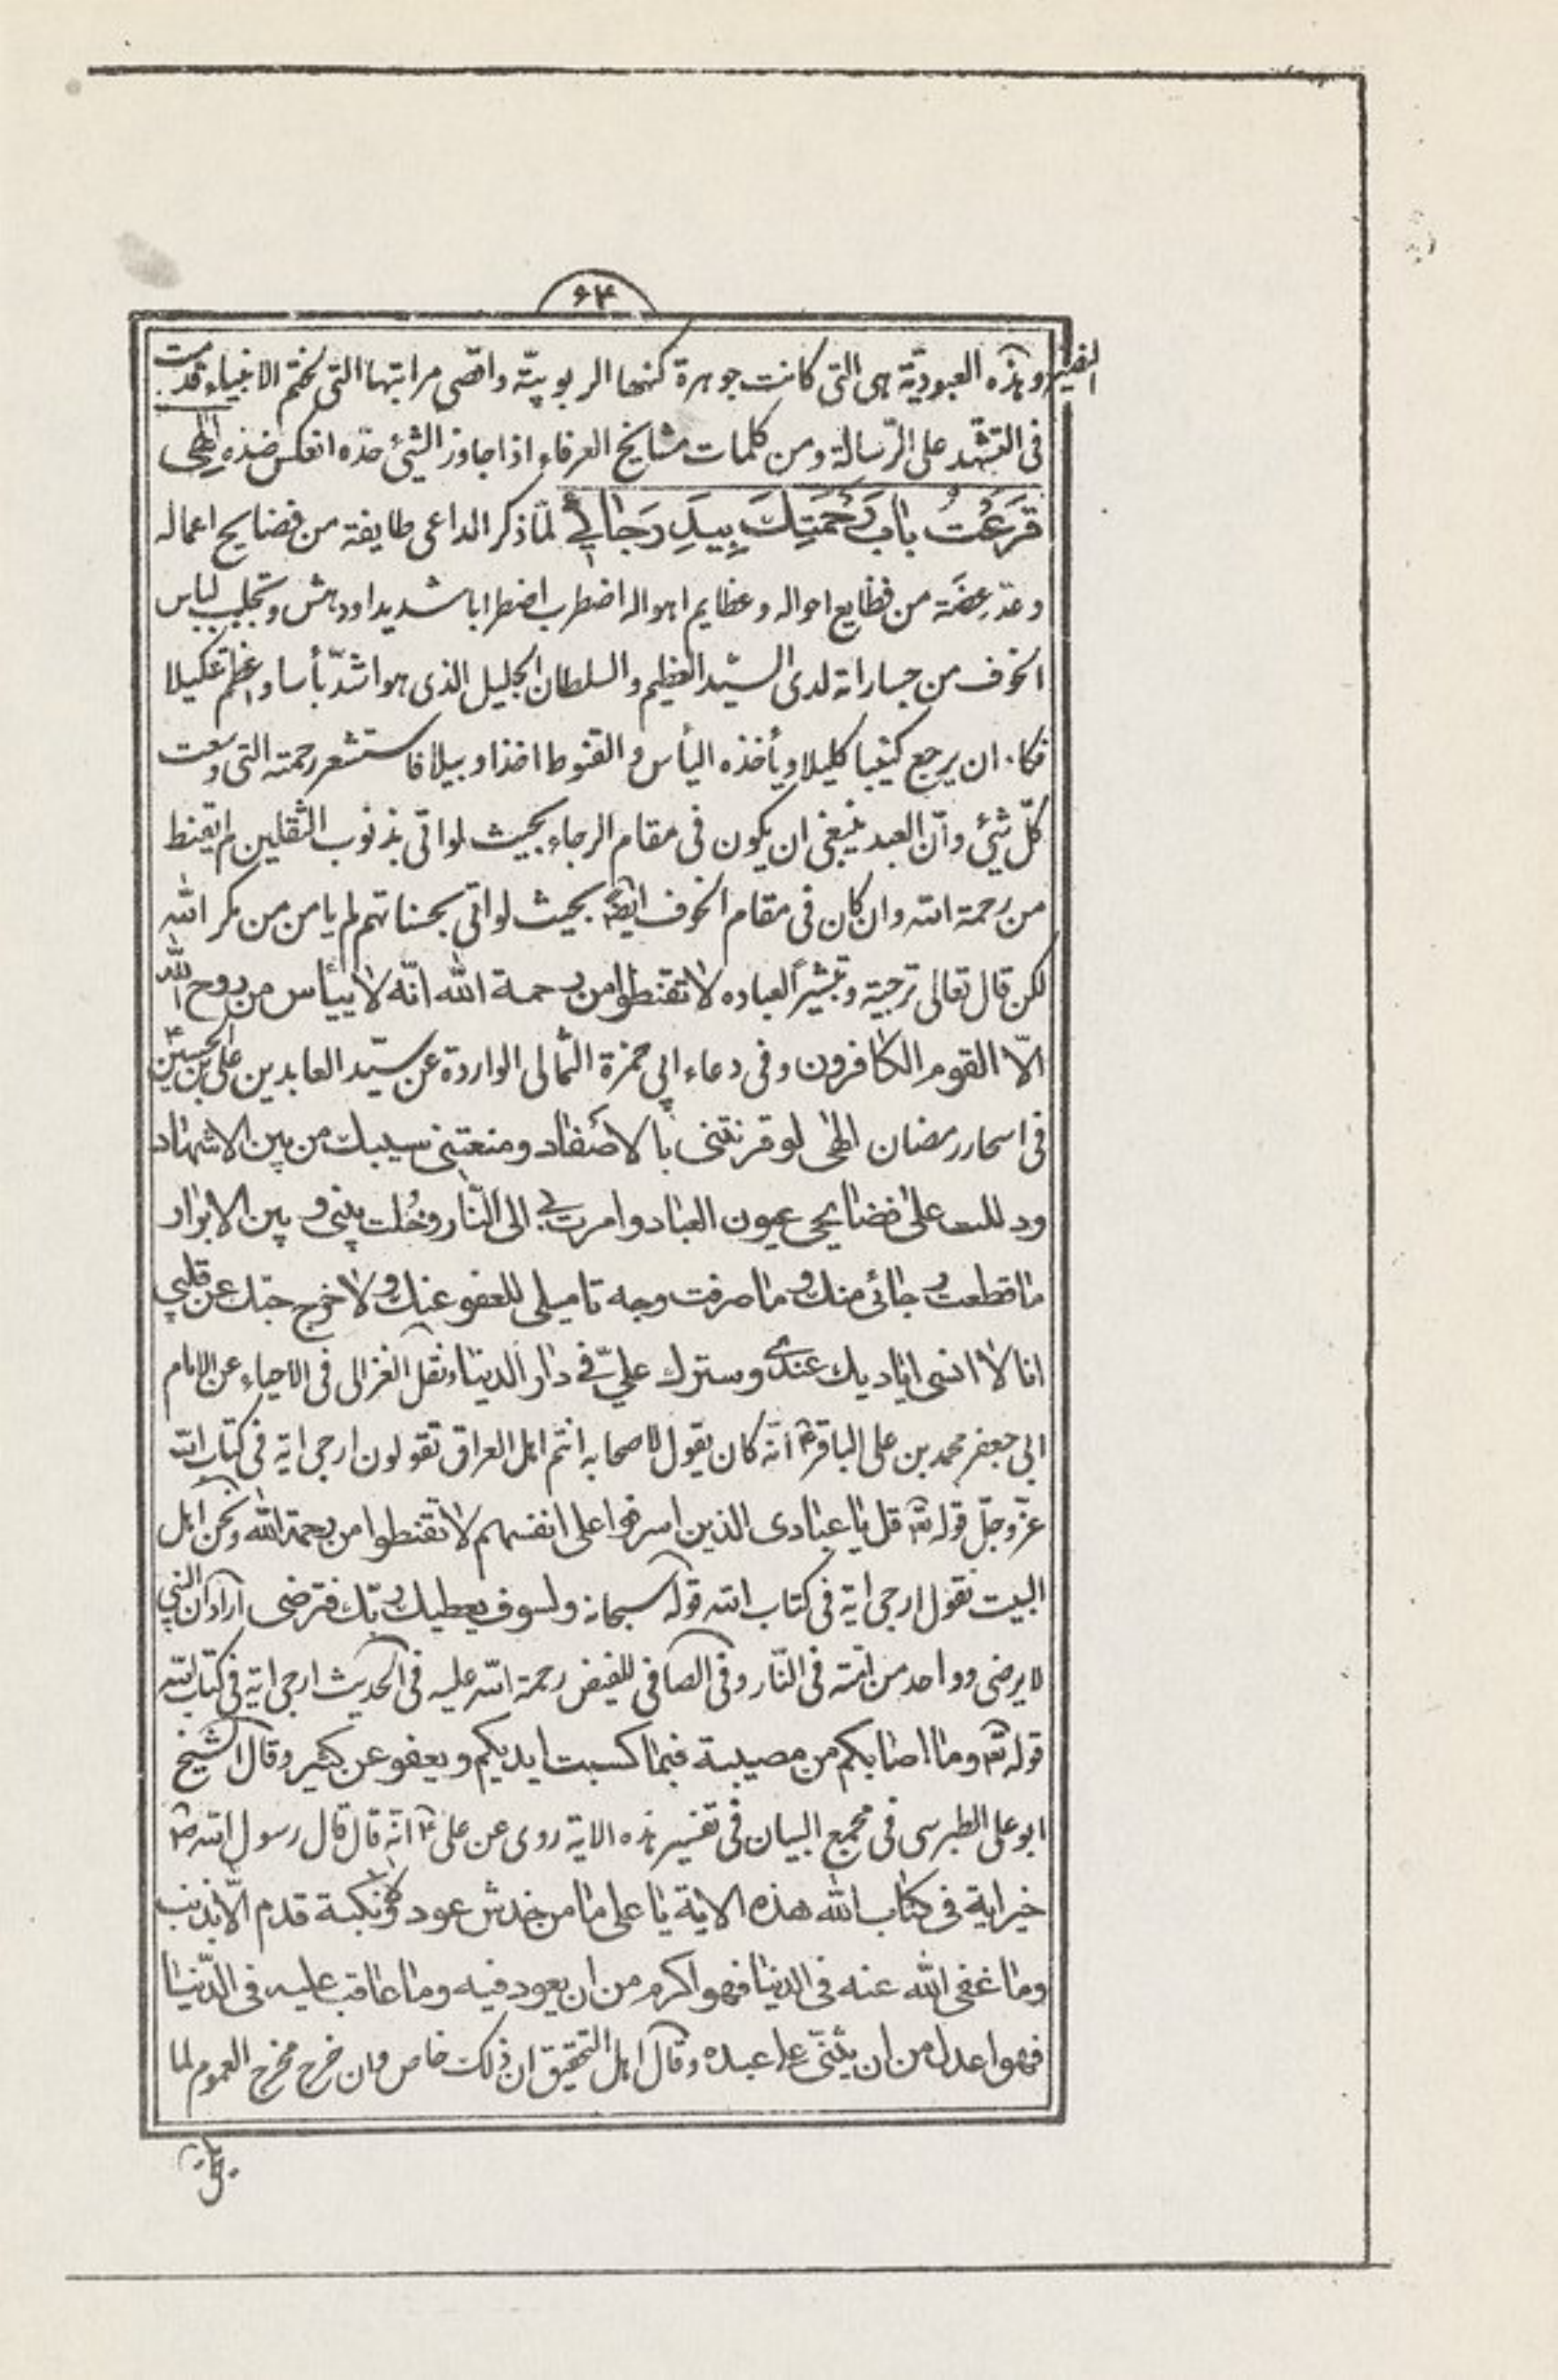 ۶۴
النضير وهذه العبوديّة هى التى كانت جوهرة كنهها الربوبيّة واقصى مراتبها التى لختم الانبياء قدمت
فى التشهد على الرّسالة ومن كلمات مشايخ العرفاء اذا جاوز الشئ حدّه انعكس ضدّه الٰهى
قَرَعْتُ بابَ رَحْمَتِكَ بِيَدِ رَجائى لمّا ذكر الداعى طايفة من فضايح اعماله
وعدّ عِضَة من فظايع احواله وعظايم اهواله اضطرب اضطرابا شديدا ودهش وتجلبب لباس
الخوف من جساراته لدى السيّد العظيم والسلطان الجليل الذى هو اشدّ بأسا واعظم تنكيلا
فكاد ان يرجع كئيبا كليلا ويأخذه اليأس والقنوط اخذا وبيلا فاستشعر رحمته التى وسعت
كلّ شئ وانّ العبد ينبغى ان يكون فى مقام الرجاء بحيث لو اتى بذنوب الثقلين لم يقنط
من رحمة الله وان كان فى مقام الخوف ايضا بحيث لو اتى بحسناتهم لم يامن من مكر الله
لكن قال تعالى ترجية وتبشيرًا لعباده لا تقنطوا من رحمة الله انّه لا ييأس من روح الله
الّا القوم الكافرون وفى دعاء ابى حمزة الثمالى الواردة عن سيّد العابدين على بن الحسين ع
فى اسحار رمضان الٰهى لو قرنتنى بالاصفاد ومنعتنى سيبك من بين الاشهاد
ودللت على فضايحى عيون العباد وامرت بى الى النّار وحُلت بينى وبين الابرار
ما قطعت رجائى منك وما صرفت وجه تاميلى للعفو عنك ولا خرج حبّك عن قلبى
انا لا انسى اياديك عندى وسترك علىّ فى دار الدنيا ونقل الغزالى فى الاحياء عن الامام
ابى جعفر محمد بن على الباقر ع انّه كان يقول لاصحابه انتم اهل العراق تقولون ارجى اية فى كتاب الله
عزّ وجلّ قوله تع قل يا عبادى الذين اسرفوا على انفسهم لا تقنطوا من رحمة الله ونحن اهل
البيت نقول ارجى اية فى كتاب الله قوله سبحانه ولسوف يعطيك ربّك فترضى اراد ان النبى
لا يرضى وواحد من امّته فى النّار وفى الصافى للفيض رحمة الله عليه فى الحديث ارجى اية فى كتاب الله
قوله تع وما اصابكم من مصيبة فبما كسبت ايديكم ويعفو عن كثير وقال الشيخ
ابو على الطبرسى فى مجمع البيان فى تفسير هذه الاية روى عن على ع انّه قال قال رسول الله ص
خير اية فى كتاب الله هذه الاية يا على ما من خدش عود ولا نكبة قدم الّا بذنب
وما عفى الله عنه فى الدنيا فهو اكرم من ان يعود فيه وما عاقب عليه فى الدّنيا
فهو اعدل من ان يثنّى على عبده وقال اهل التحقيق ان ذلك خاص وان خرج مخرج العموم لما